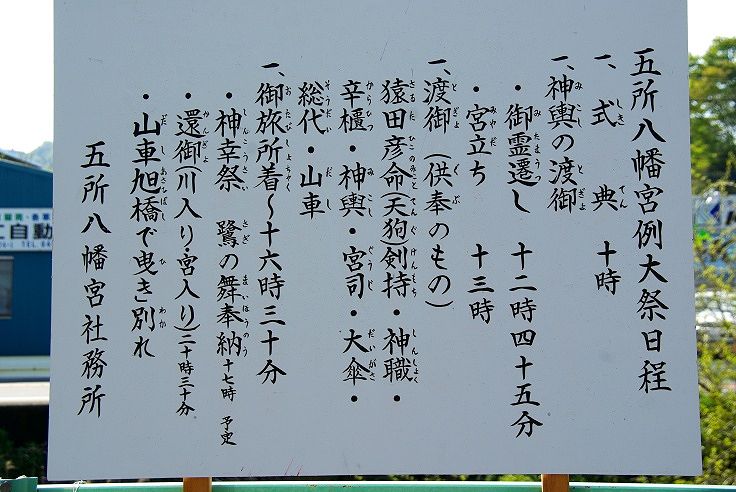 五所八幡宮例大祭日程
一、式典 十時
一、神輿の渡御
・御霊遷し 十二時四十五分
・宮立ち 十三時
一、渡御(供奉のもの)
猿田彦命(天狗)剣持・神職・
辛櫃・神輿・宮司・大傘・
総代・山車
一、御旅所着〜十六時三十分
・神幸祭 鷺の舞奉納 十七時 予定
・還御(川入り・宮入り)二十時三十分
・山車旭橋で曳き別れ
五所八幡宮社務所
自動
TEL